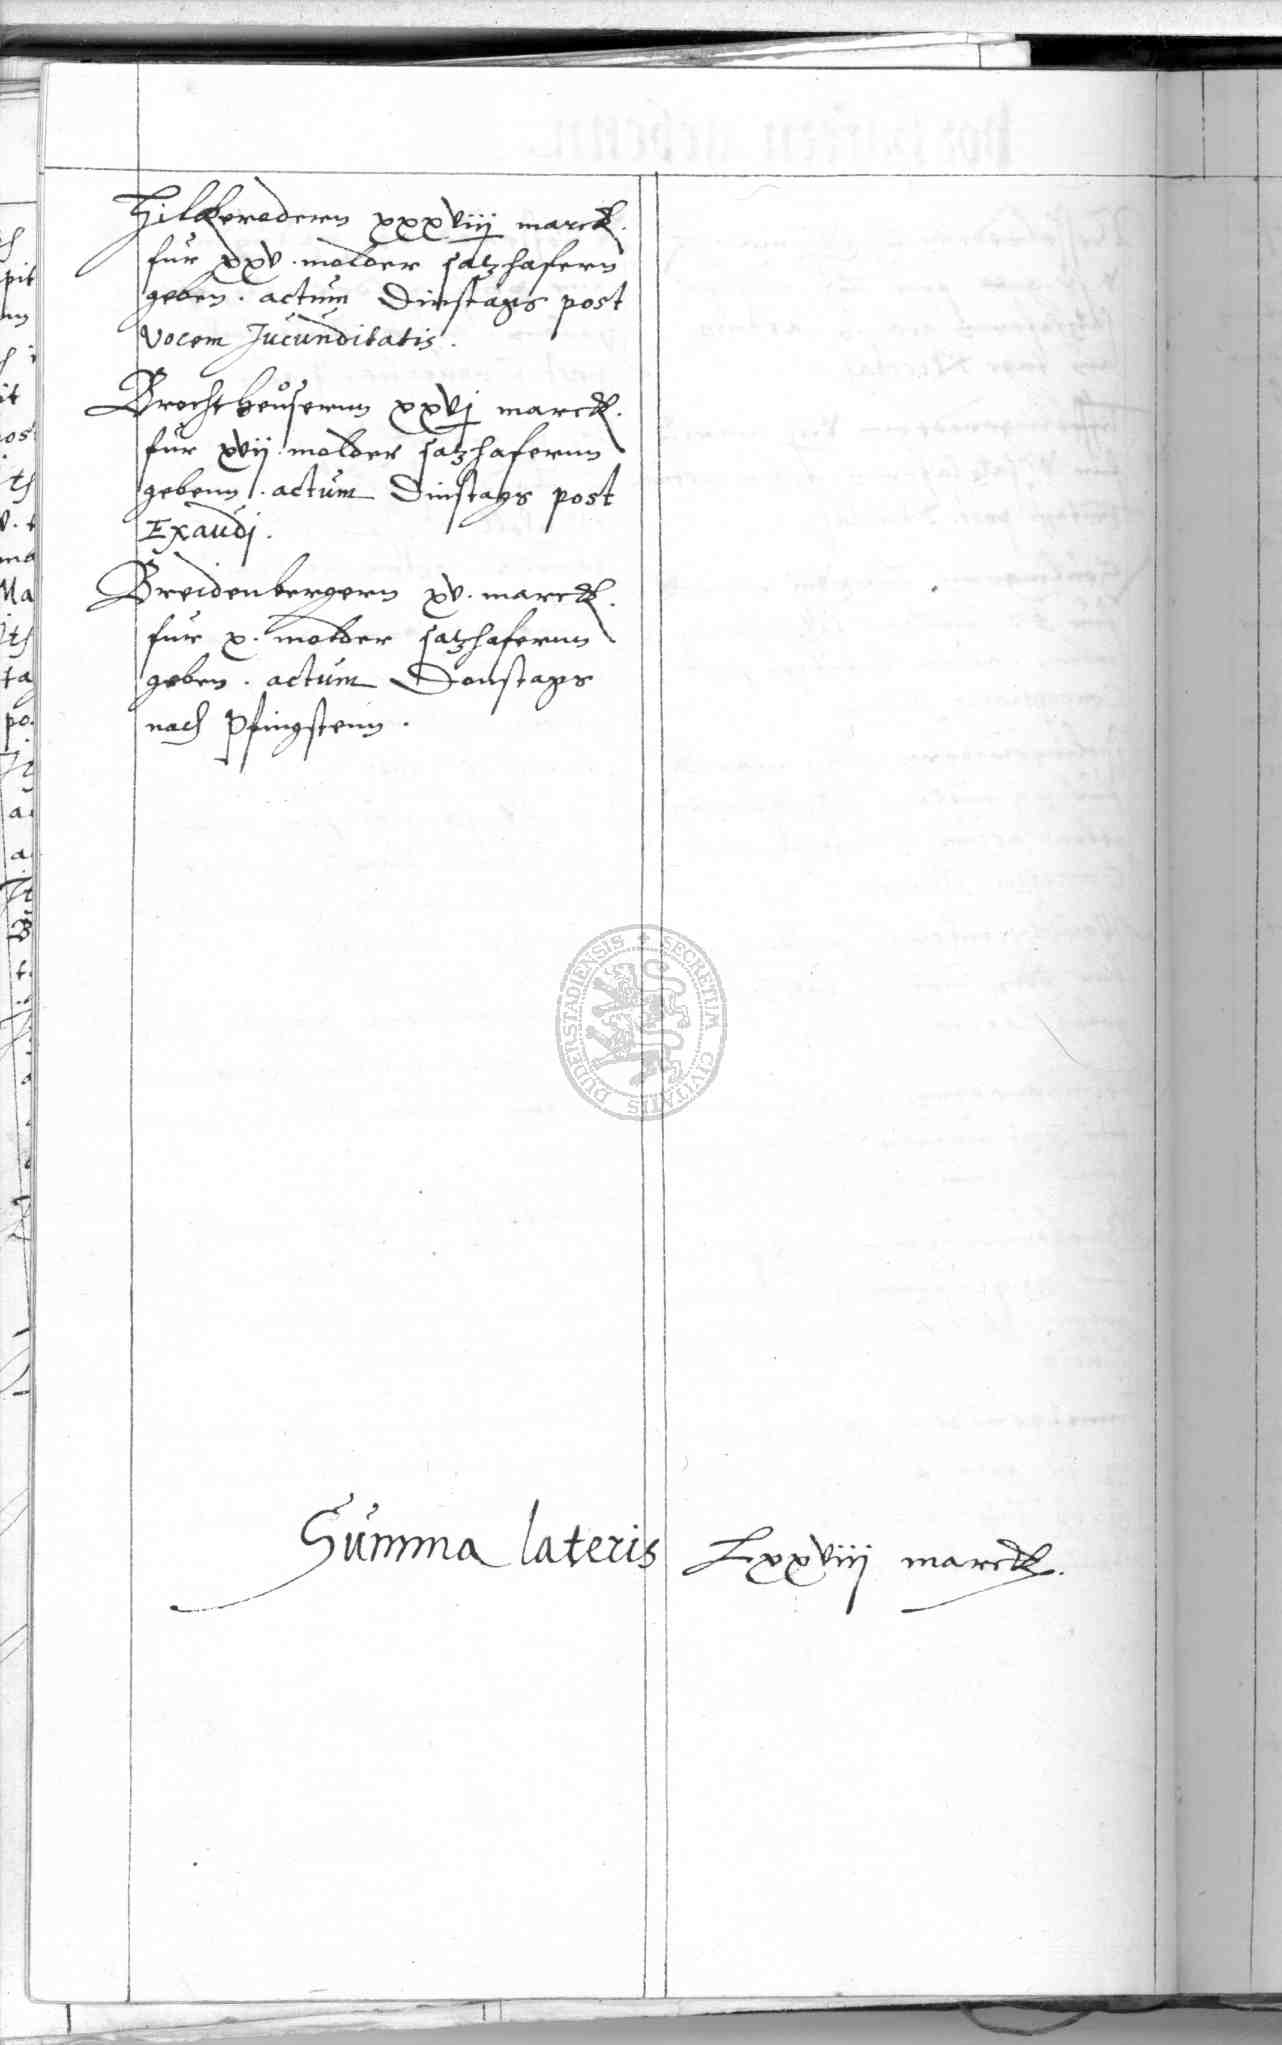 Hilkerodern xxxviij marck.
fur xxv. molder satzhafern
geben. actum Dinstags post
Vocem Jucunditatis.
Brochtheusernn xxvj marck.
fur xvij molder satzhafernn
gebenn. actum Dinstags post
Exaudi.
Breidenbergern xv. marck.
fur x. molder satzhafernn
geben. actum Donstags
nach Pfingstenn.
DUDERSTADIENSIS + SECRETUM CIVITATIS
Summa lateris Lxxviij marck.